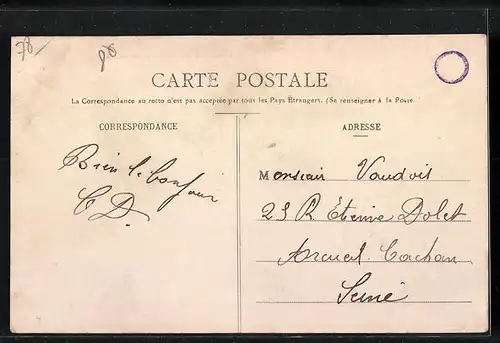 78
98
CARTE POSTALE
La Correspondance au recto n'est pas acceptée par tous les Pays Étrangers. (Se renseigner à la Poste
CORRESPONDANCE
ADRESSE
Bien le bonjour
C D.
Monsieur Vaudoit
23 R. Etienne Dolet
Arcueil-Cachan
Seine